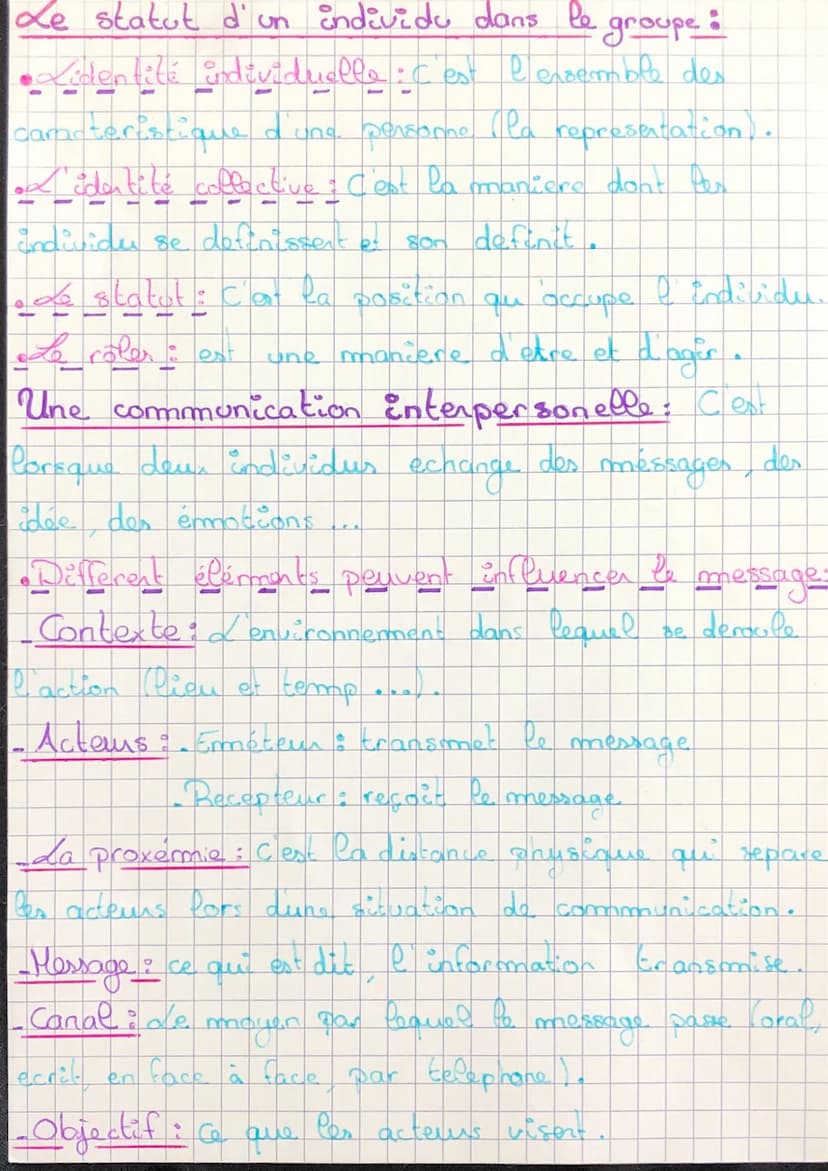 Le statut d'un individu dans le groupe :
• L'identité individuelle : C'est l'ensemble des
caracteristique d'une personne (la representation).
• L'identité collective : C'est la maniere dont les
individu se definissent et son definit.
• Le statut : C'est la position qu'occupe l'individu.
• Le rôles : est une maniere d'etre et d'agir.
Une communication interpersonelle : C'est
lorsque deux individus echange des méssages, des
idée, des émotions ...
• Différent éléments peuvent influencer le message :
- Contexte : L'environnement dans lequel se deroule
l'action (lieu et temp ...).
- Acteurs : . Emméteur : transmet le message
. Recepteur : reçoit le message
- La proxémie : c'est la distance physique qui separe
les acteurs lors d'une situation de communication.
- Message : ce qui est dit, l'information transmise.
- Canal : Le moyen par lequel le message passe (oral,
ecrit, en face à face, par telephone).
- Objectif : Ce que les acteurs visent.